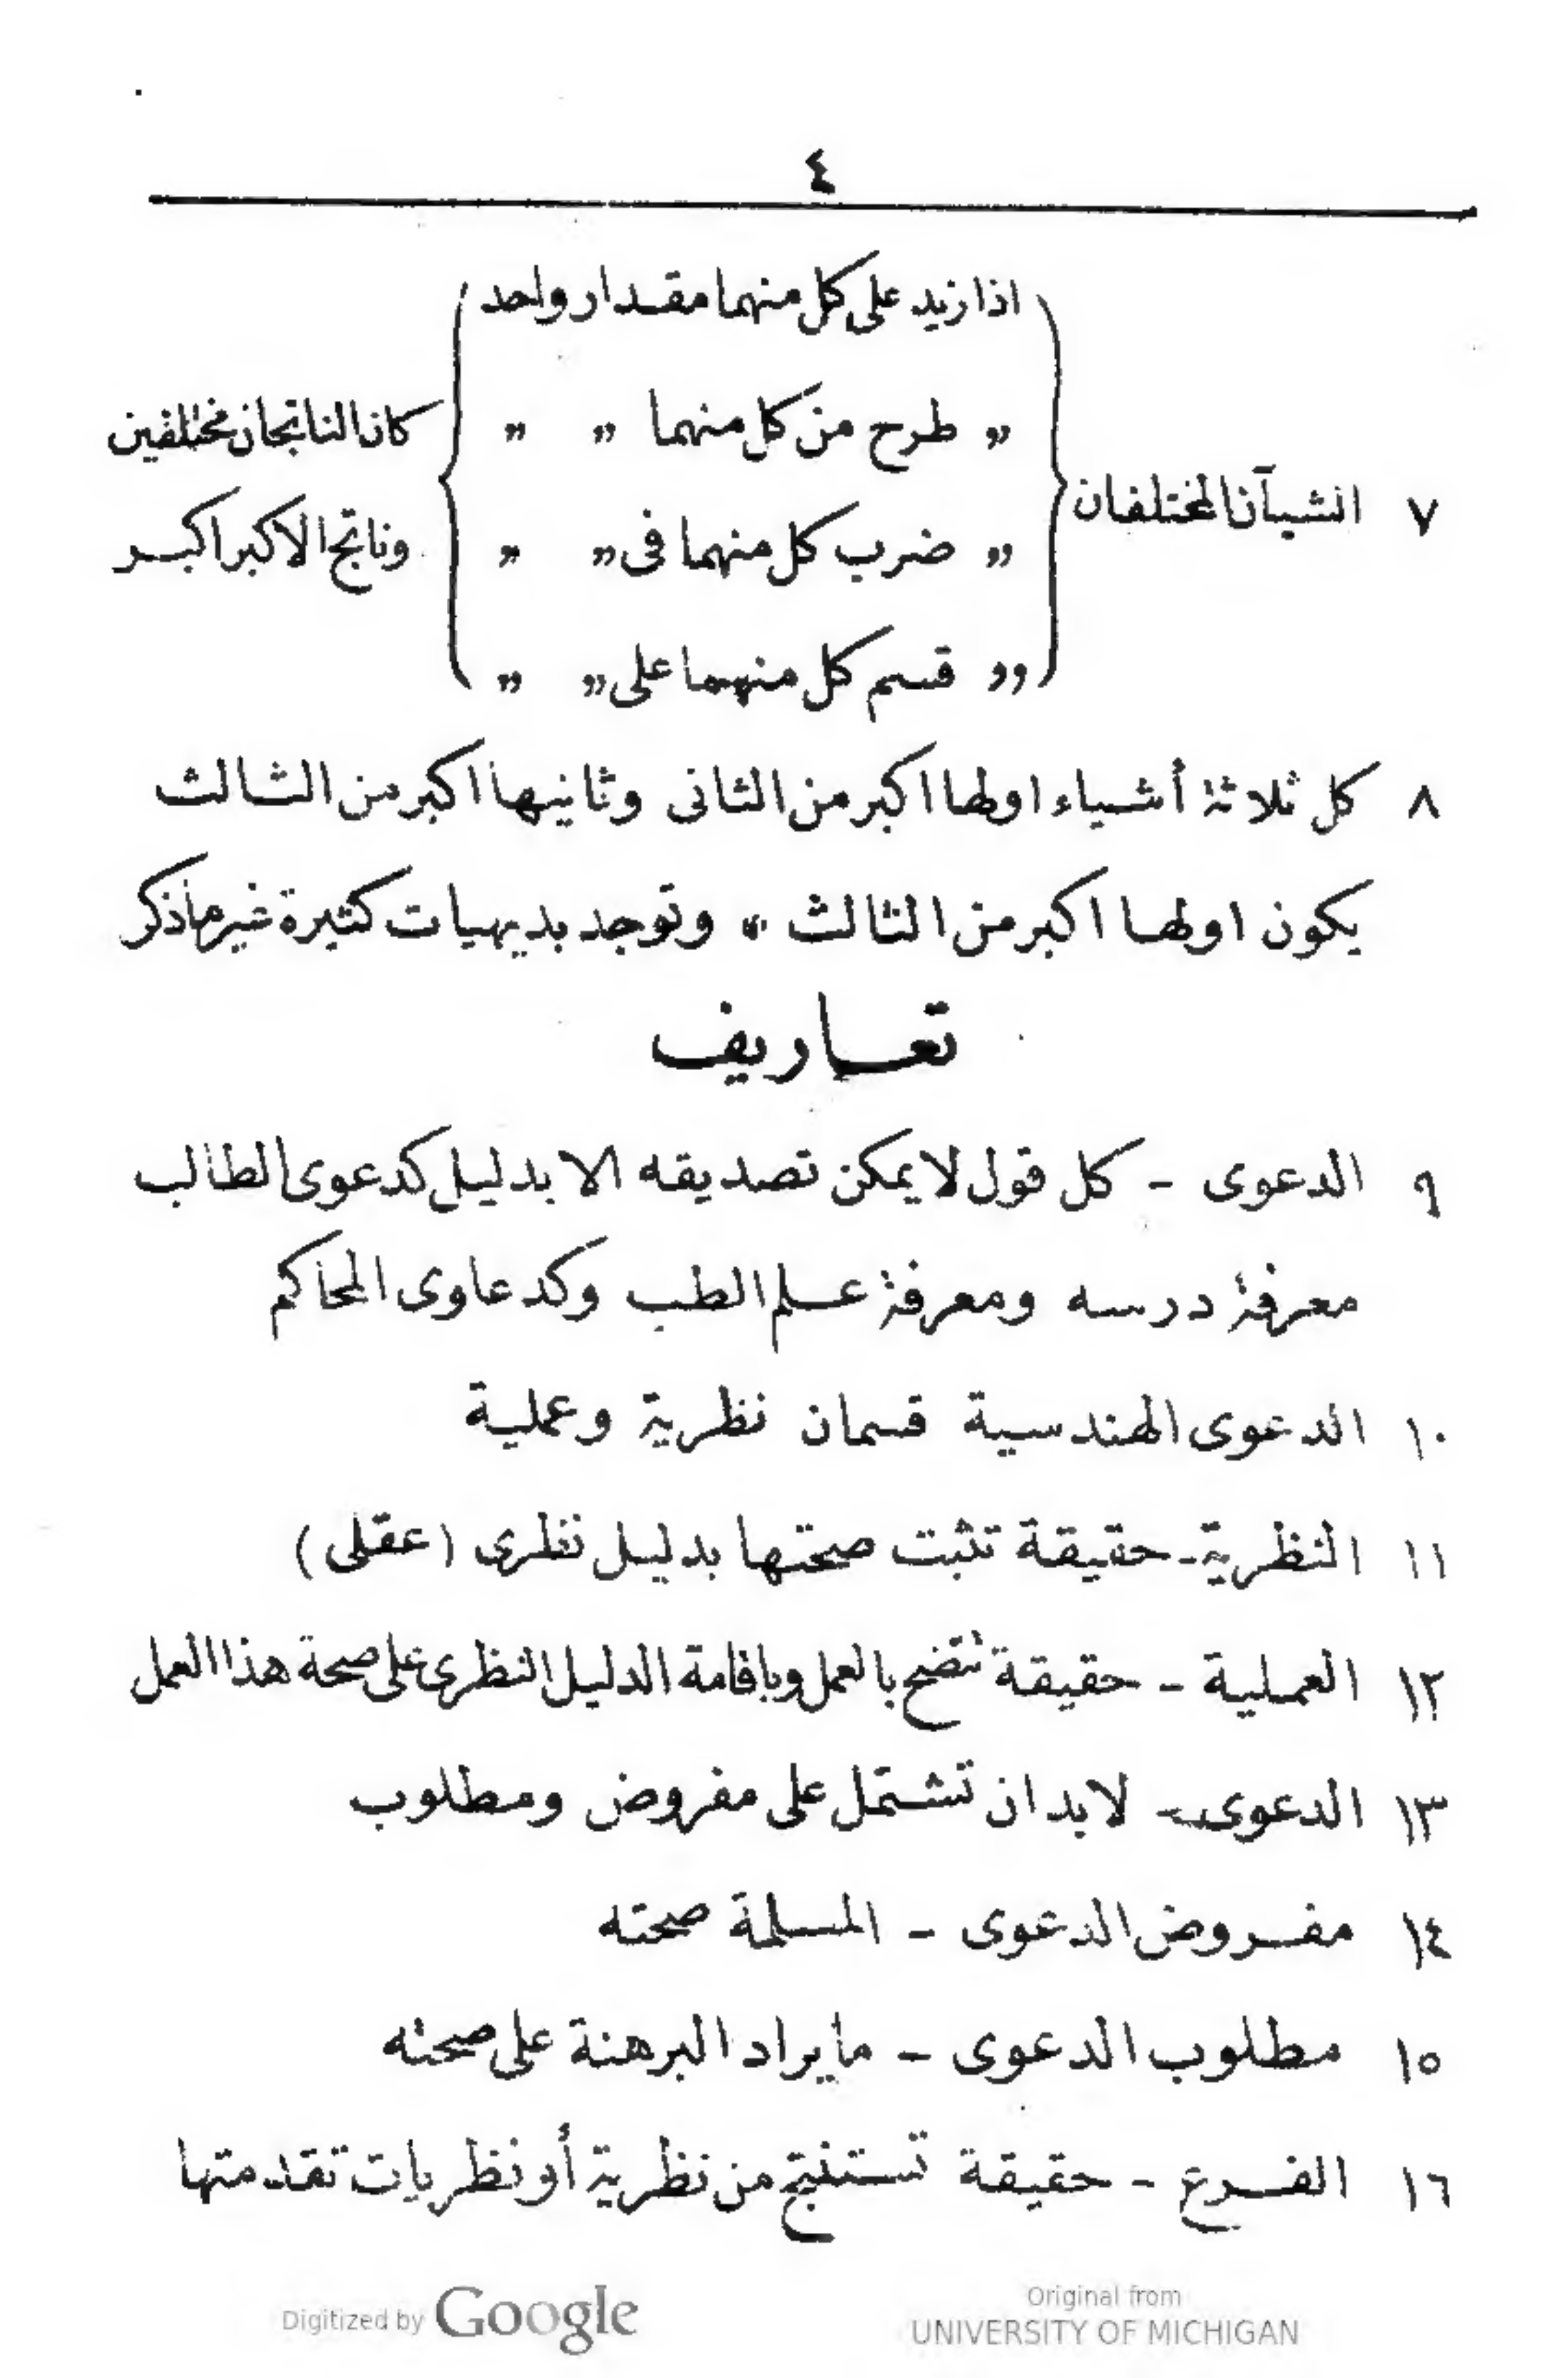 ٤
٧ الشيآن المختلفان
اذا زيد على كل منهما مقدار واحد
„ طرح من كل منهما „ „
„ ضرب كل منهما فى „ „
„ قسم كل منهما على „ „
كان الناتجان مختلفين
وناتج الاكبر اكبر
٨ كل ثلاثة أشياء اولها اكبر من الثانى وثانيها اكبر من الثالث
يكون اولها اكبر من الثالث » وتوجد بديهيات كثيرة غير ماذكر
تعاريف
٩ الدعوى - كل قول لا يمكن تصديقه الا بدليل كدعوى الطالب
معرفة درسه ومعرفة علم الطب وكدعاوى المحاكم
١٠ الدعوى الهندسية قسمان نظرية وعملية
١١ النظرية - حقيقة تثبت صحتها بدليل نظرى (عقلى)
١٢ العملية - حقيقة تتضح بالعمل وباقامة الدليل النظرى على صحة هذا العمل
١٣ الدعوى - لابد ان تشتمل على مفروض ومطلوب
١٤ مفروض الدعوى - المسلمة صحته
١٥ مطلوب الدعوى - ما يراد البرهنة على صحته
١٦ الفرع - حقيقة تستنتج من نظرية أو نظريات تقدمتها
Digitized by Google
Original from
UNIVERSITY OF MICHIGAN